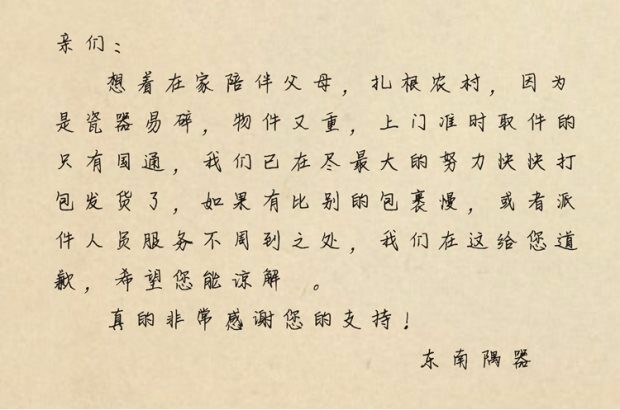 亲们：
想着在家陪伴父母，扎根农村，因为
是瓷器易碎，物件又重，上门准时取件的
只有国通，我们已在尽最大的努力快快打
包发货了，如果有比别的包裹慢，或者派
件人员服务不周到之处，我们在这给您道
歉，希望您能谅解 。
真的非常感谢您的支持！
东南隅器